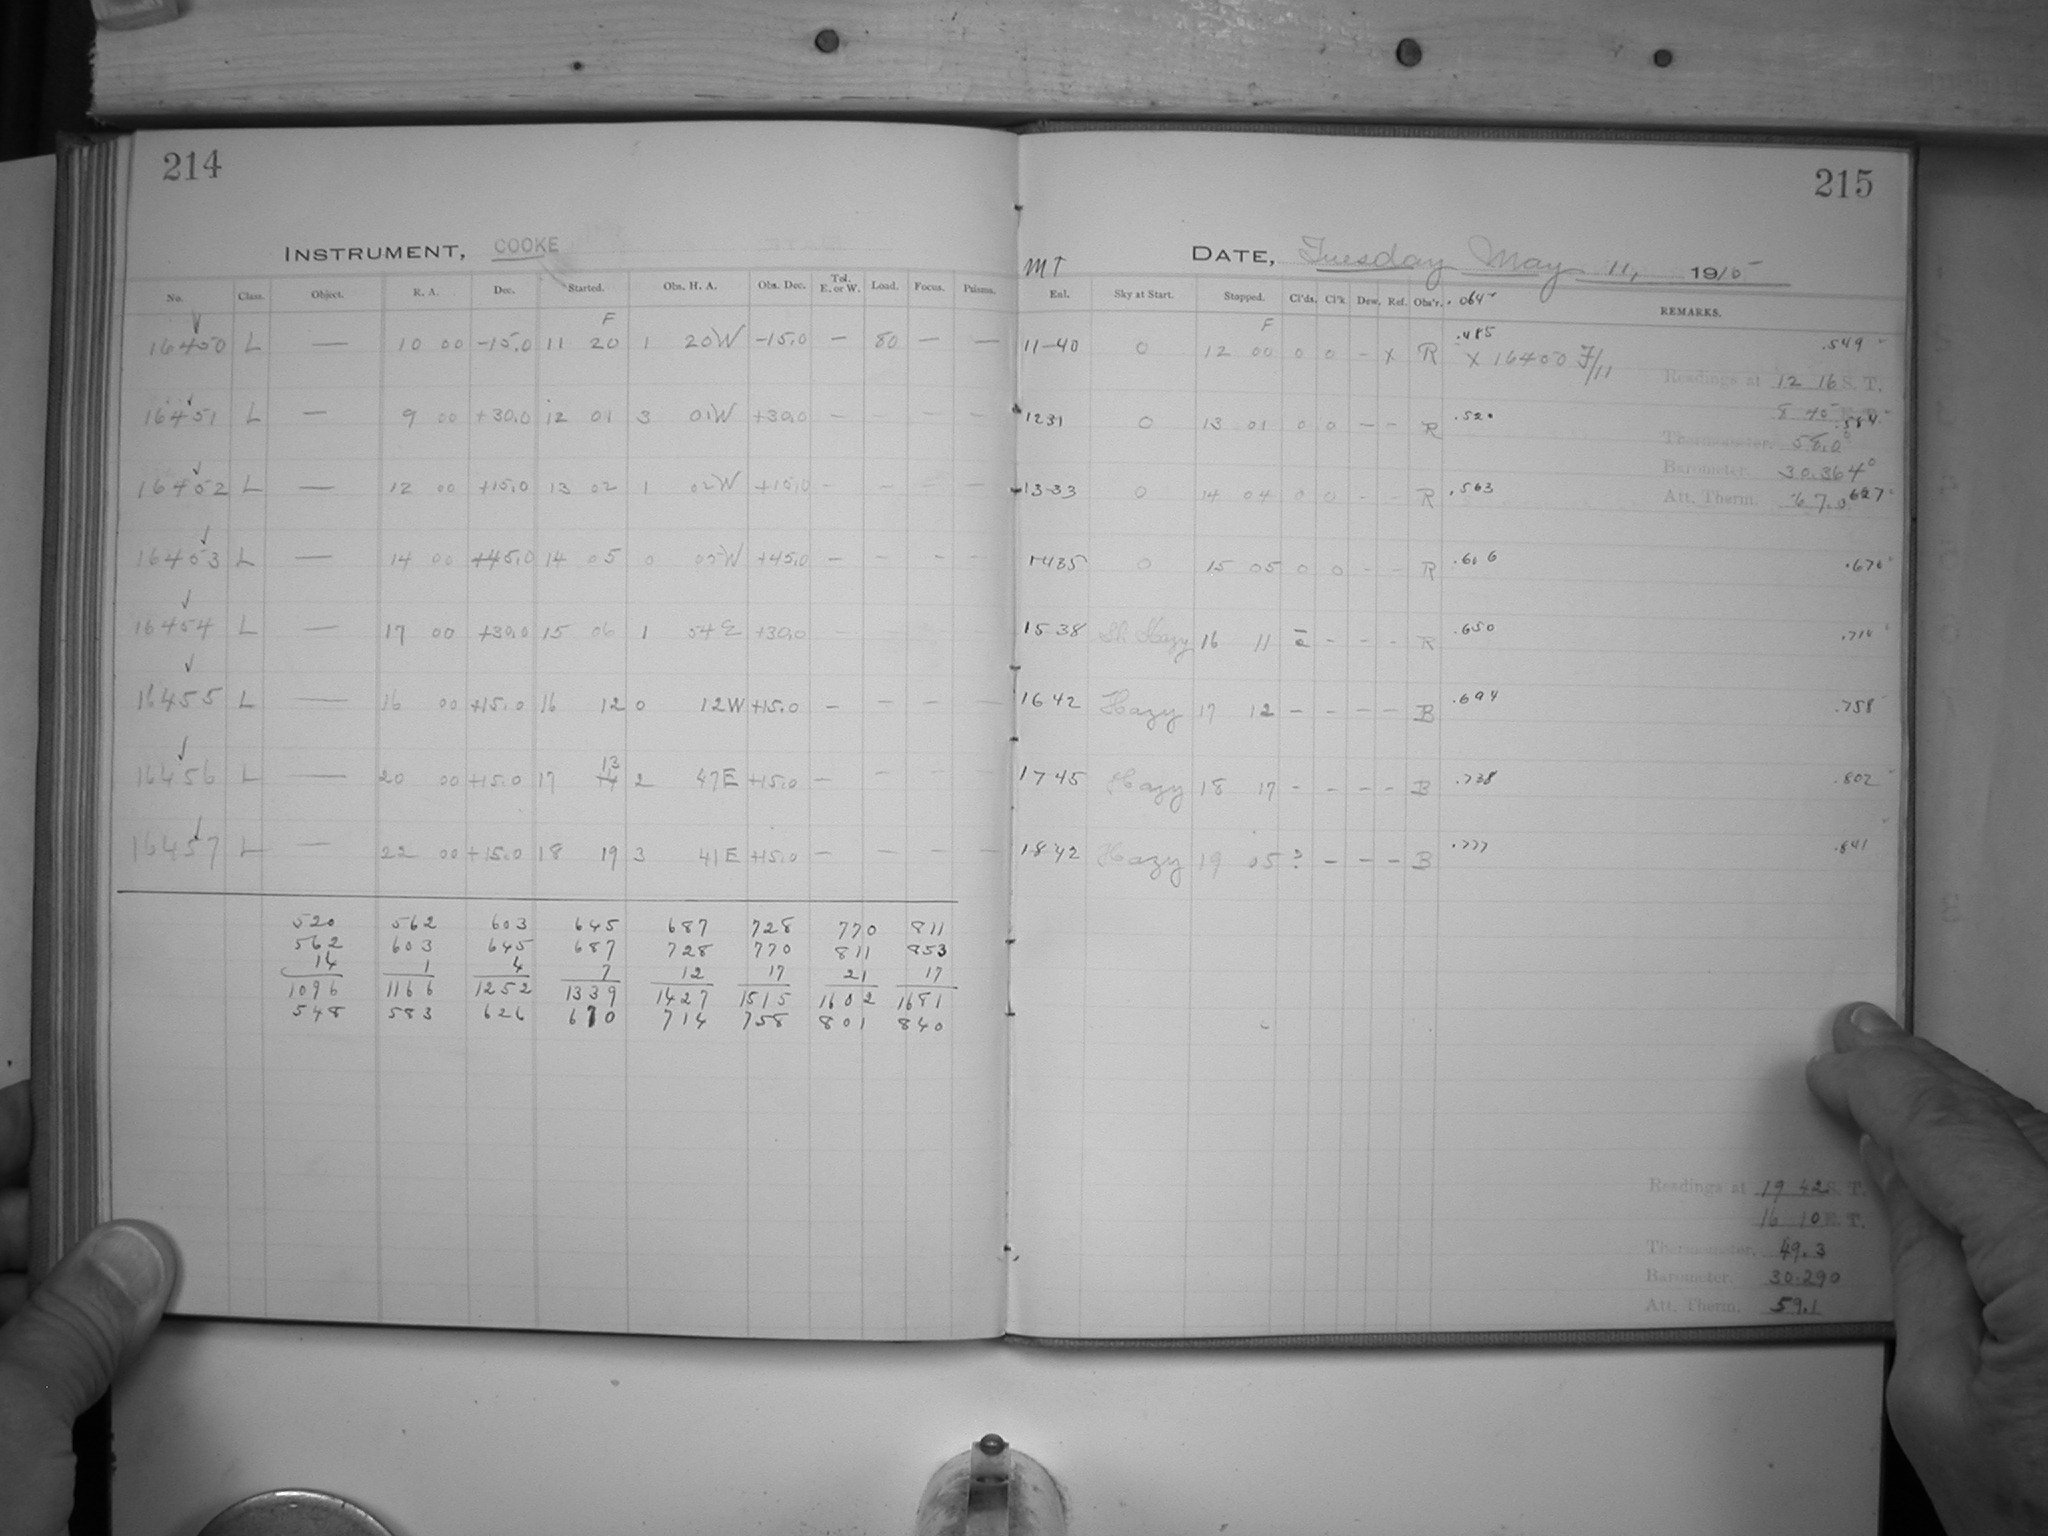 214
INSTRUMENT, COOKE
No. Class. Object. R. A. Dec. Started. Obs. H. A. Obs. Dec. Tel. E. or W. Load. Focus. Prisms.
F
16450 L — 10 00 -15.0 11 20 1 20W -15.0 — 80 — —
16451 L — 9 00 +30.0 12 01 3 01W +30.0 — — — —
16452 L — 12 00 +15.0 13 02 1 02W +15.0 — — — —
16453 L — 14 00 +45.0 14 05 0 05W +45.0 — — — —
16454 L — 17 00 +30.0 15 06 1 54E +30.0 — — — —
16455 L — 16 00 +15.0 16 12 0 12W +15.0 — — — —
13
16456 L — 20 00 +15.0 17 14 2 47E +15.0 — — — —
16457 L — 22 00 +15.0 18 19 3 41E +15.0 — — — —
520 562 603 645 687 728 770 811
562 603 645 687 728 770 811 853
14 1 4 7 12 17 21 17
1096 1166 1252 1339 1427 1515 1602 1681
548 583 626 670 714 758 801 840
215
MT
DATE, Tuesday May 11, 1915
Eul. Sky at Start. Stopped. Cl'ds. Cl'k Dew. Ref. Obs'r. .064 REMARKS.
F
11-40 0 12 00 0 0 - x R .485 .549
x 16450 F/11
Readings at 12 16 S. T.
8 45
1231 0 13 01 0 0 - - R .520 .584
Thermometer, 58.0°
Barometer. 30.364
13-33 0 14 04 0 0 - - R .563 .627
Att. Therm. 67.0
1435 0 15 05 0 0 - - R .606 .670
1538 Sl. Hazy 16 11 - - - R .650 .714
1642 Hazy 17 12 - - - - B .694 .758
1745 Hazy 18 17 - - - - B .738 .802
1842 Hazy 19 05 ? - - - B .777 .841
Readings at 19 42 S. T.
16 10 E. T.
Thermometer, 49.3
Barometer. 30.290
Att. Therm. 59.1